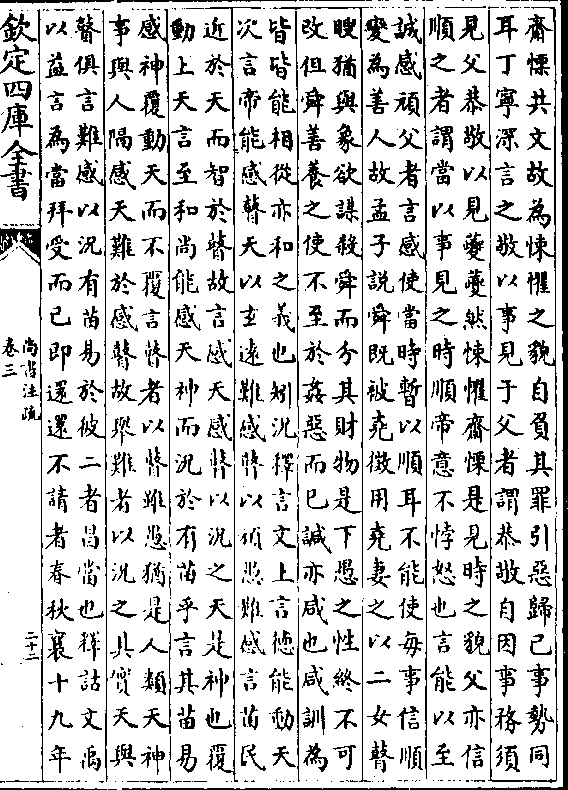 齋慄共文故為悚懼之貌自負其罪引惡歸己事勢同
耳丁寧深言之敬以事見于父者謂恭敬自因事務須
見父恭敬以見夔夔然悚懼齋慄是見時之貌父亦信
順之者謂當以事見之時順帝意不悖怒也言能以至
誠感頑父者言感使當時暫以順耳不能使每事信順
變為善人故孟子說舜既被堯徵用堯妻之以二女瞽
瞍猶與象欲謀殺舜而分其財物是下愚之性終不可
改但舜善養之使不至於姦惡而已諴亦咸也咸訓為
皆皆能相從亦和之義也矧況釋言文上言德能動天
次言帝能感瞽天以玄遠難感瞽以頑愚難感言苗民
近於天而智於瞽故言感天感瞽以況之天是神也覆
動上天言至和尚能感天神而況於有苗乎言其苗易
感神覆動天而不覆言瞽者以瞽雖愚猶是人類天神
事與人隔感天難於感瞽故舉難者以況之其實天與
瞽俱言難感以況有苗易於彼二者昌當也釋詁文禹
以益言為當拜受而已即還還不請者春秋襄十九年
欽定四庫全書
尚書注疏
卷三
二十二